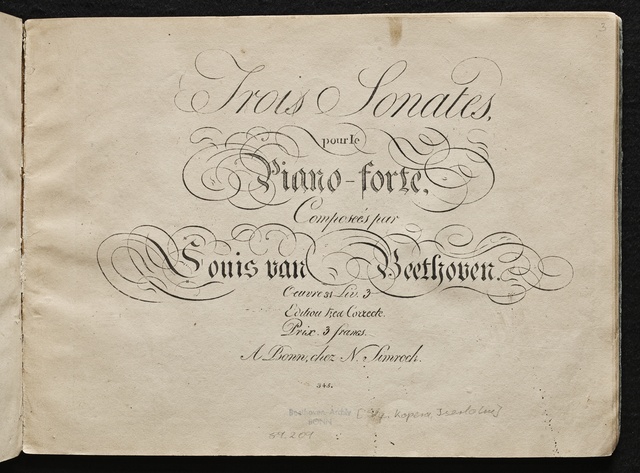 3
Trois Sonates,
pour le
Piano-forte,
Composeés par
Louis van Beethoven.
Oeuvre 31 Liv. 3
Edition tres Correcte.
Prix. 3 francs.
A Bonn, chez N. Simrock.
345.
Beethoven-Archiv
BONN